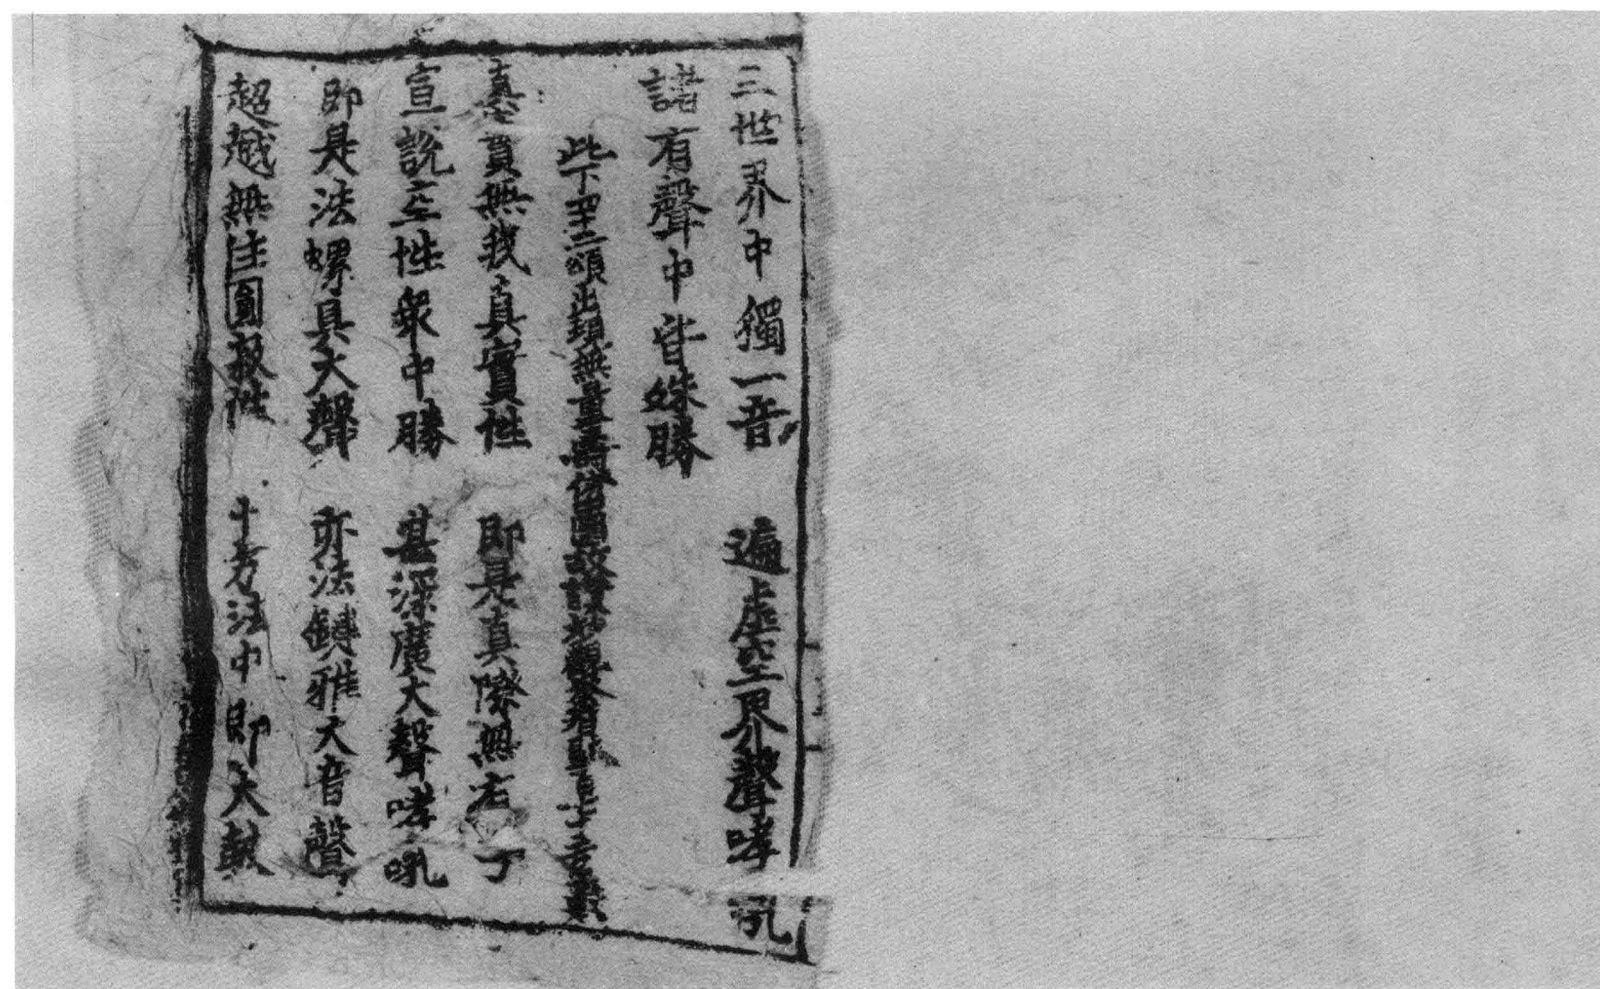 三世界中獨一音　遍虛空界聲哮吼
諸有聲中皆殊勝
此下四十二頌出現無量壽佾圖故讃妙觀察智
真實無我真實性　即是真際無
宣說空性衆中勝　甚深廣大聲哮吼
即是法螺具大聲　亦法鍵雅大音聲
超越無住圓寂性　十方法中即大鼓